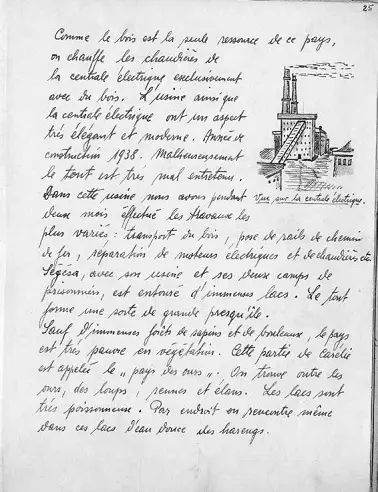 25
Comme le bois est la seule ressource de ce pays,
on chauffe les chaudières de
la centrale électrique exclusivement
avec du bois. L'usine ainsi que
la centrale électrique ont un aspect
très élégant et moderne. Année de
construction 1938. Malheureusement
le tout est très mal entretenu.
Dans cette usine nous avons pendant
Vue sur la centrale électrique.
deux mois effectué les travaux les
plus variés : transport du bois, pose de rails de chemin
de fer, réparation de moteurs électriques et de chaudières etc.
Ségésa, avec son usine et ses deux camps de
prisonniers, est entouré d'immenses lacs. Le tout
forme une sorte de grande presqu'île.
Sauf d'immenses forêts de sapins et de bouleaux, le pays
est très pauvre en végétation. Cette partie de Carélie
est appelée le „pays des ours". On trouve outre les
ours, des loups, rennes et élans. Les lacs sont
très poissonneuse. Par endroit on rencontre même
dans ces lacs d'eau douce des harengs.